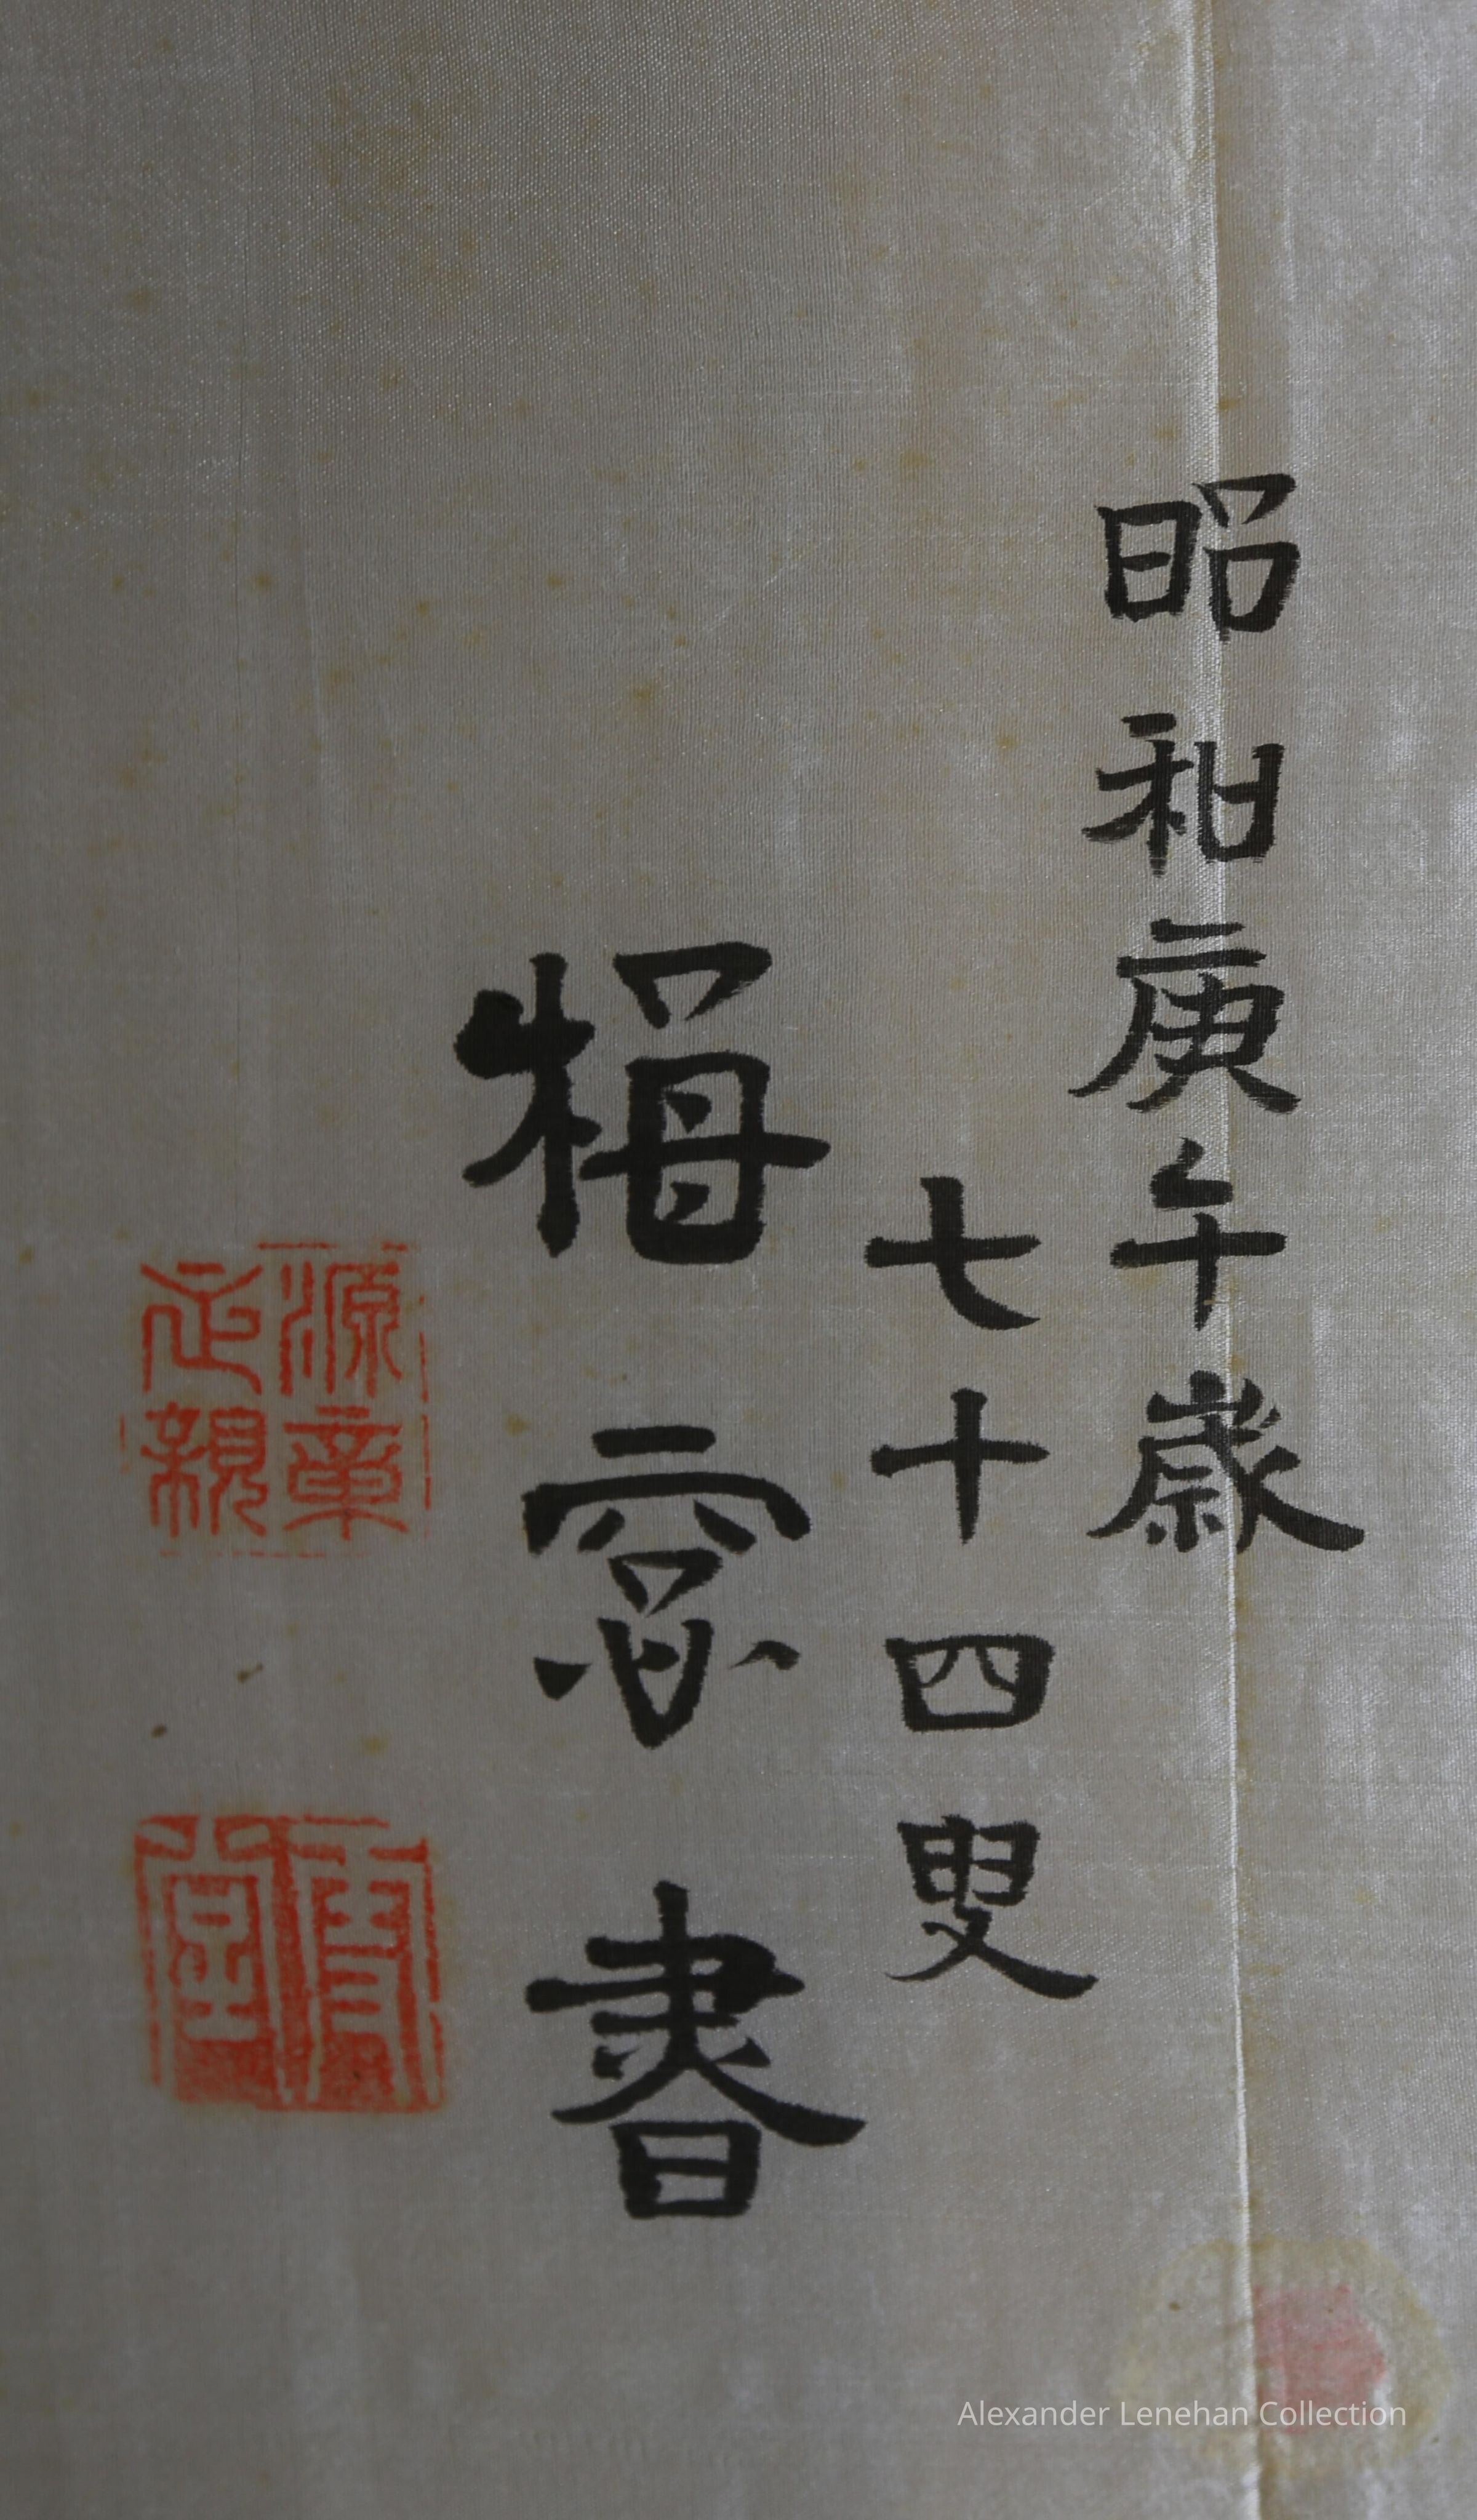 昭和庚午歳
七十四叟
梅窓書
源章
定親
Alexander Lenehan Collection